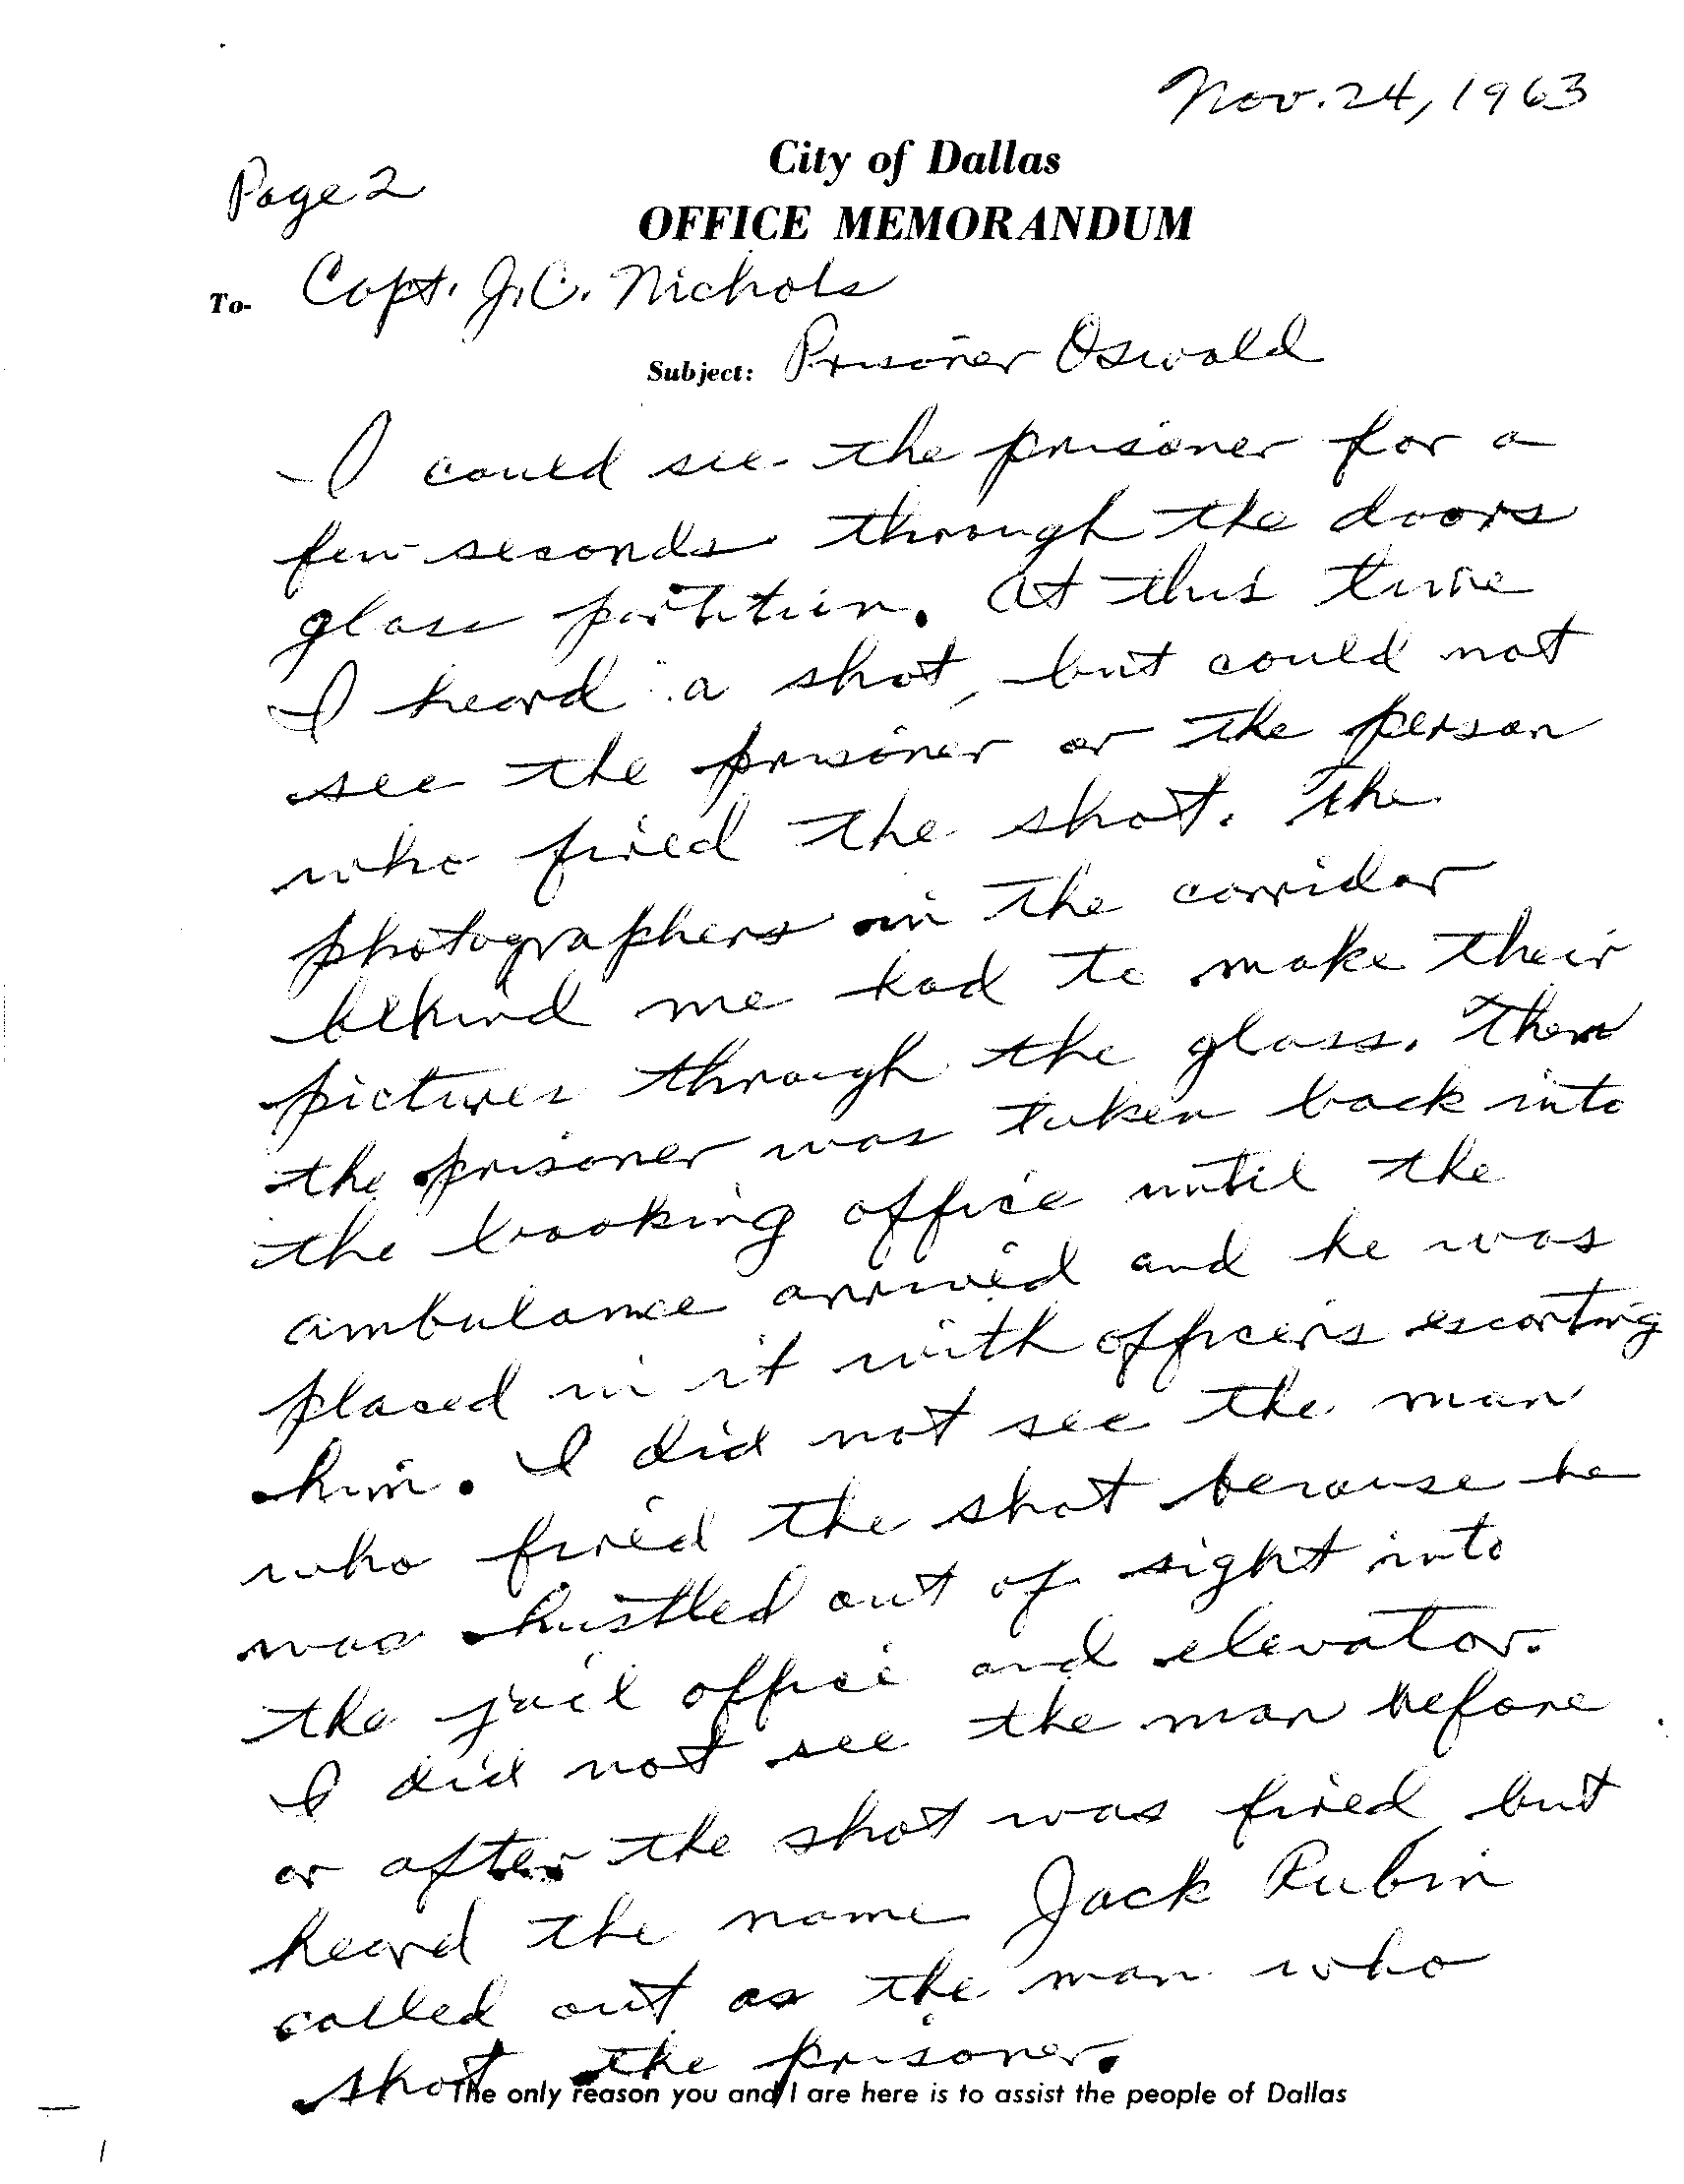 Nov. 24, 1963
City of Dallas
Page 2
OFFICE MEMORANDUM
To- Capt. J.C. Nichols
Subject: Prisoner Oswald
I could see the prisoner for a
few seconds through the doors
glass partition. At this time
I heard a shot, but could not
see the prisoner or the person
who fired the shot. The
photographers in the corridor
behind me had to make their
pictures through the glass. Then
the prisoner was taken back into
the booking office until the
ambulance arrived and he was
placed in it with officers escorting
him. I did not see the man
who fired the shot because he
was hustled out of sight into
the jail office and elevator.
I did not see the man before
or after the shot was fired but
heard the name Jack Rubin
called out as the man who
shot the prisoner.
The only reason you and I are here is to assist the people of Dallas